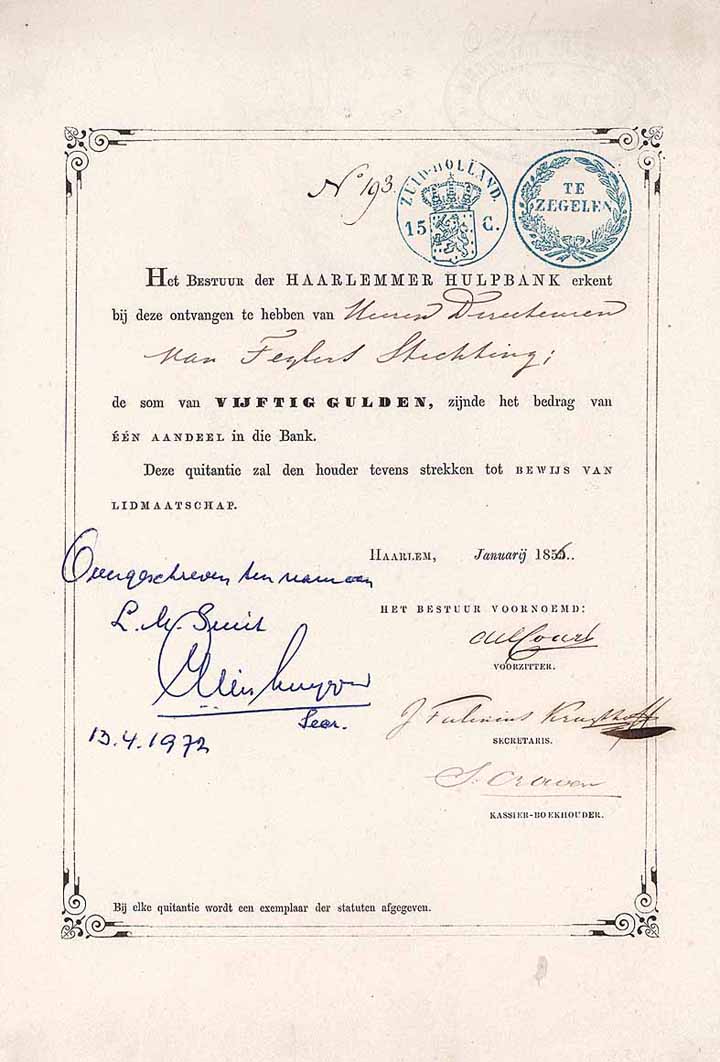 No 193.
ZUID-HOLLAND.
15 C.
TE
ZEGELEN
Het Bestuur der HAARLEMMER HULPBANK erkent
bij deze ontvangen te hebben van Heeren Directeuren
van Teylers Stichting;
de som van VIJFTIG GULDEN, zijnde het bedrag van
ÉÉN AANDEEL in die Bank.
Deze quitantie zal den houder tevens strekken tot BEWIJS VAN
LIDMAATSCHAP.
HAARLEM, Januarij 1856.
HET BESTUUR VOORNOEMD:
VOORZITTER.
SECRETARIS.
KASSIER-BOEKHOUDER.
Overgeschreven ten name van
L. M. Smit
Secr.
13.4.1972
Bij elke quitantie wordt een exemplaar der statuten afgegeven.